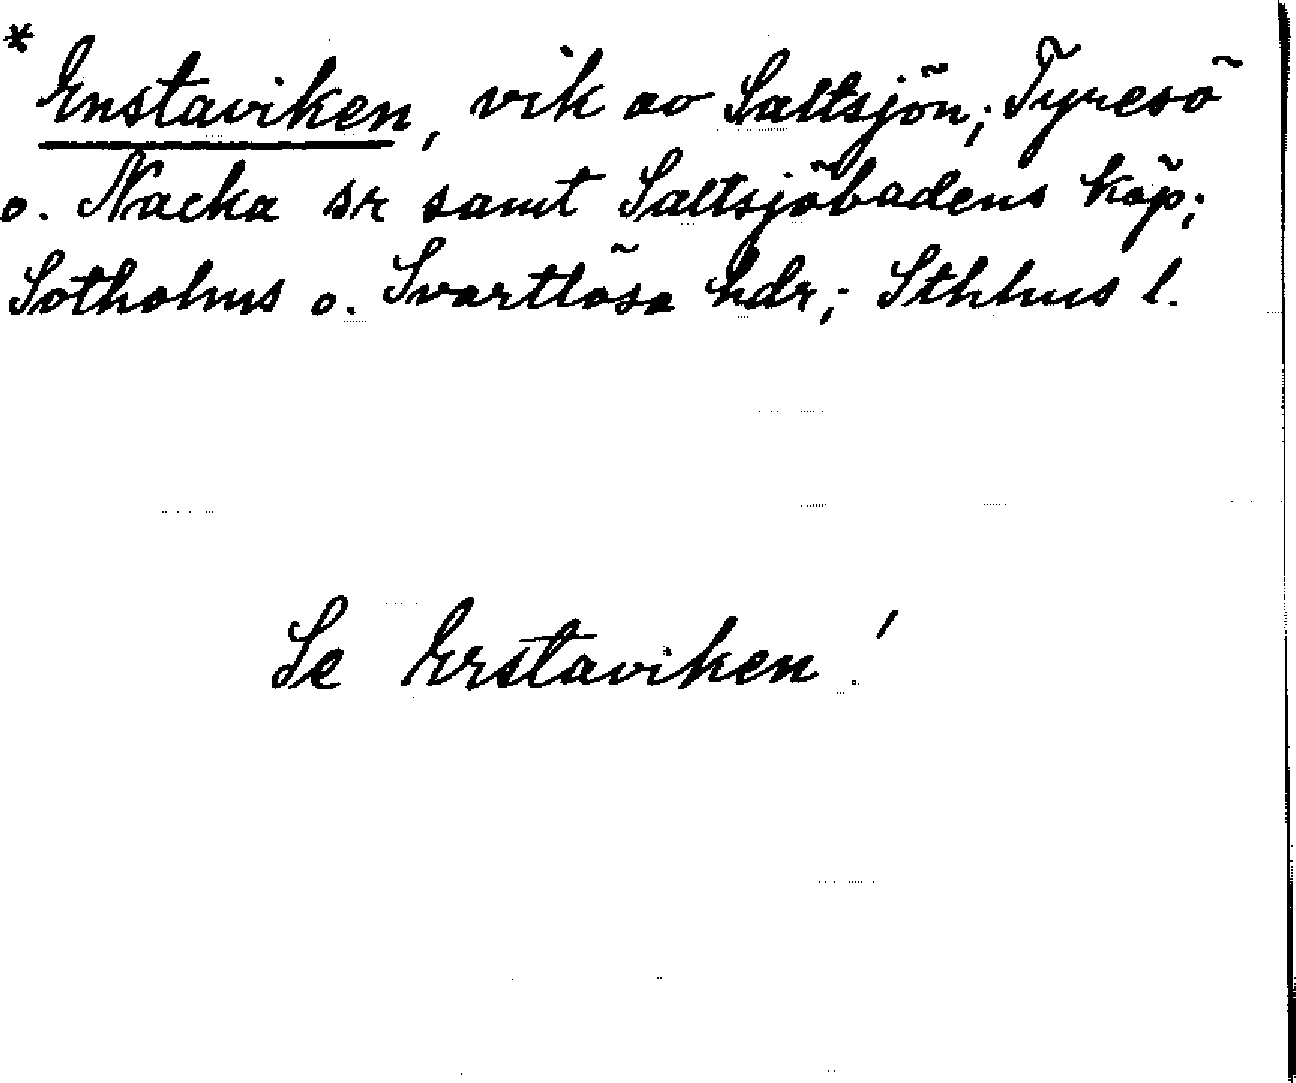 * Enstaviken, vik av Saltsjön; Tyresö
o. Nacka sr samt Saltsjöbadens köp;
Sotholms o. Svartlösa hdr; Sthlms l.
Se Erstaviken!